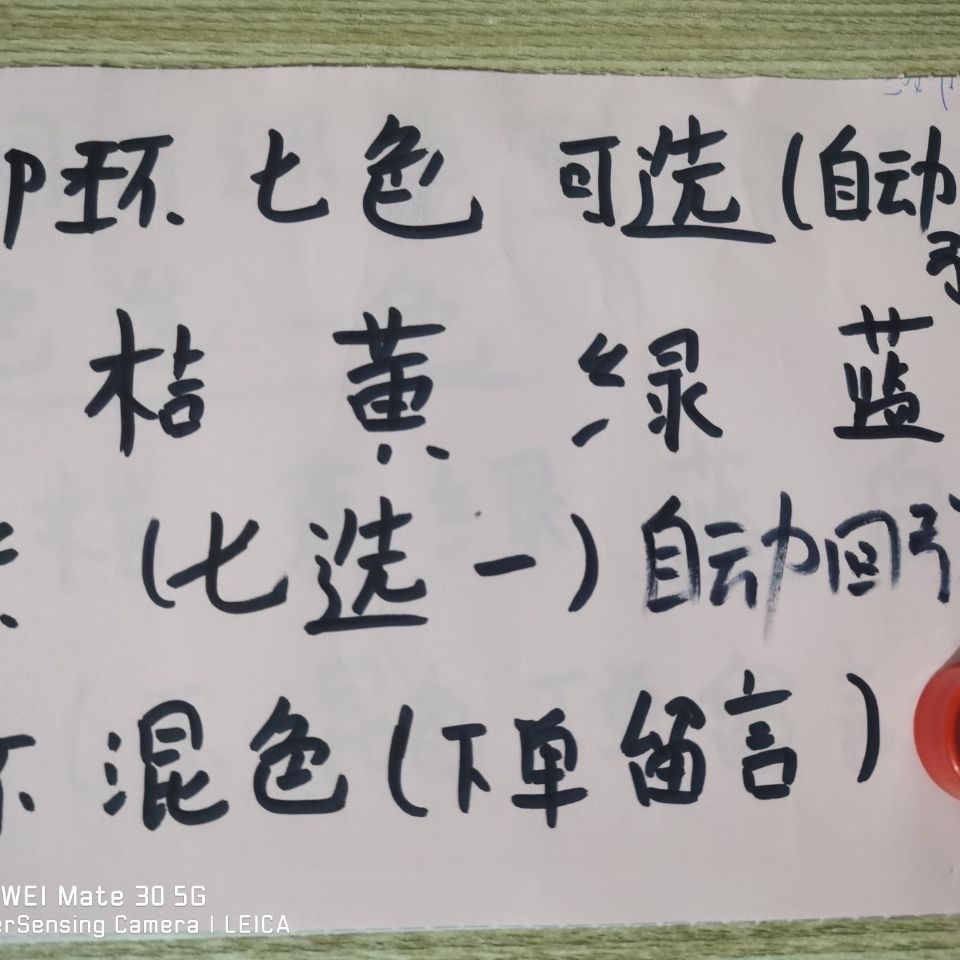 环 七色 可选(自动
桔 黄 绿 蓝
(七选一)自动回
混色(下单留言)
WEI Mate 30 5G
erSensing Camera | LEICA